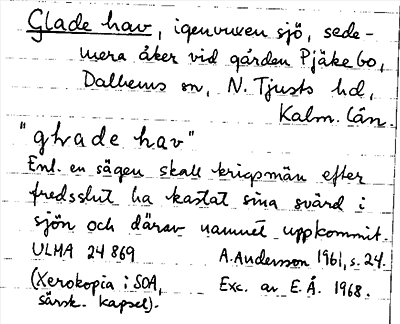 Glade hav, igenvuxen sjö, sede-
mera åker vid gården Pjäkebo,
Dalhems sn, N. Tjusts hd,
Kalm. län.
"glade hav"
Enl. en sägen skall krigsmän efter
fredsslut ha kastat sina svärd i
sjön och därav namnet uppkommit.
ULMA 24869 A. Andersson 1961, s. 24.
(Xerokopia i SOA, Exc. av E.Å. 1968.
särsk. kapsel).